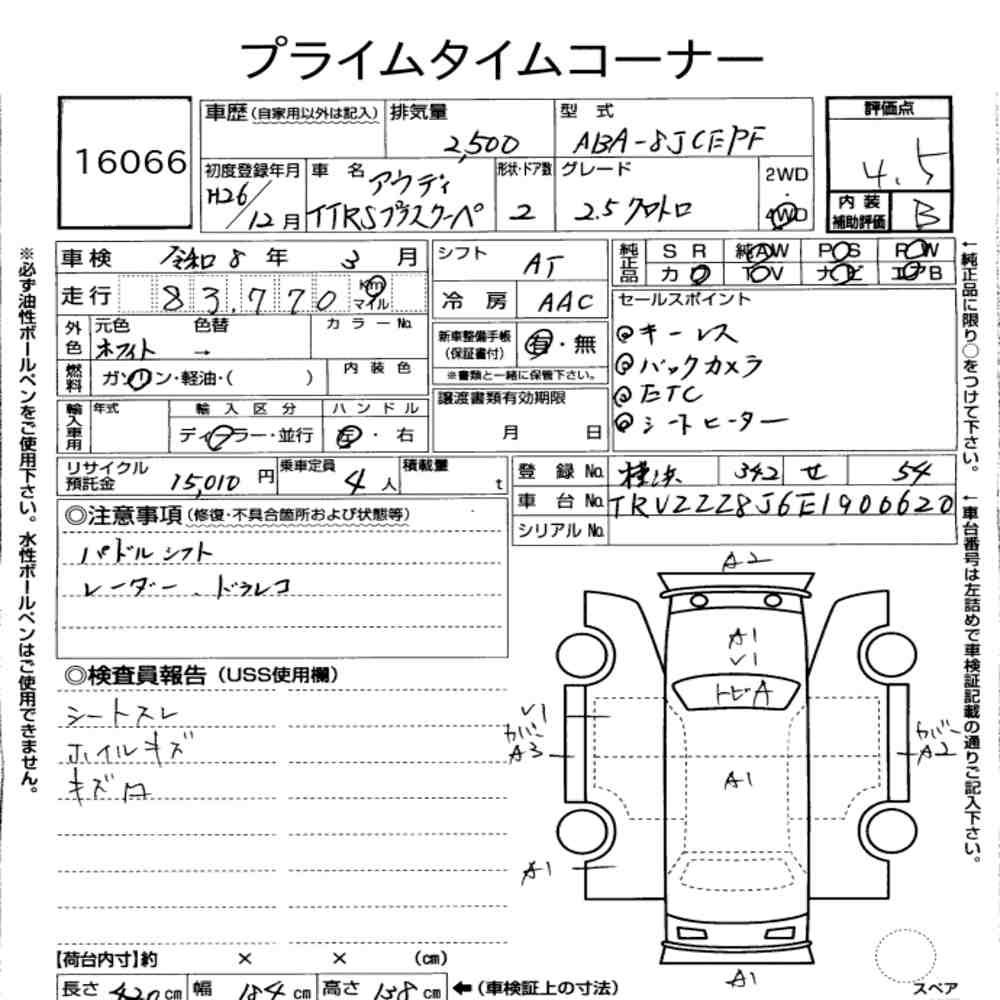 プライムタイムコーナー
16066
車歴(自家用以外は記入)
排気量 2,500
型式 ABA-8JCEPF
評価点 4.5
初度登録年月 H26/12月
車名 アウディ
TTRSプラスクーペ
形状・ドア数 2
グレード 2.5クワトロ
2WD
・
4WD
内装補助評価 B
車検 令和8年3月
走行 83,770 km マイル
外色 元色 ホワイト 色替 → カラーNo.
燃料 ガソリン・軽油・( ) 内装色
輸入車用 年式 輸入区分 ディーラー・並行 ハンドル 左・右
シフト AT
冷房 AAC
新車整備手帳(保証書付) 有・無
※書類と一緒に保管下さい。
譲渡書類有効期限
月 日
純正品 SR 純AW PS PW
カワ TV ナビ エアB
セールスポイント
◎キーレス
◎バックカメラ
◎ETC
◎シートヒーター
リサイクル預託金 15,010円 乗車定員 4人 積載量 t
登録No. 横浜 342 せ 54
車台No. TRVZZZ8J6E1900620
シリアルNo.
◎注意事項(修復・不具合箇所および状態等)
パドルシフト
レーダー、ドラレコ
◎検査員報告(USS使用欄)
シートスレ
ホイルキズ
キズ
A2
A1
V1
トビA
V1
カバー
A3
カバー
A2
A1
A1
A1
スペア
【荷台内寸】約 × × (cm)
長さ 420cm 幅 184cm 高さ 138cm ←(車検証上の寸法)
※必ず油性ボールペンをご使用下さい。水性ボールペンはご使用できません。
←純正品に限り○をつけて下さい。
←車台番号は左詰めで車検証記載の通りご記入下さい。